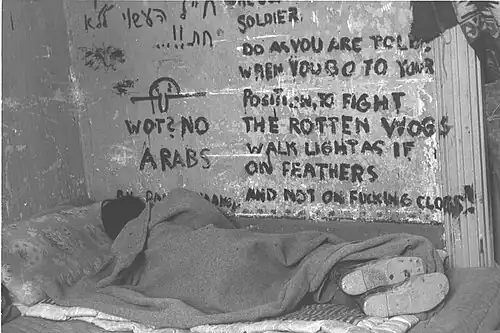 חיל העשוי ללא
חת!!...
SOLDIER.
DO AS YOU ARE TOLD,
WHEN YOU GO TO YOUR
POSITION, TO FIGHT
THE ROTTEN WOGS
WALK LIGHT AS IF
ON FEATHERS
AND NOT ON FUCKING CLOGS!!
WOT? NO
ARABS